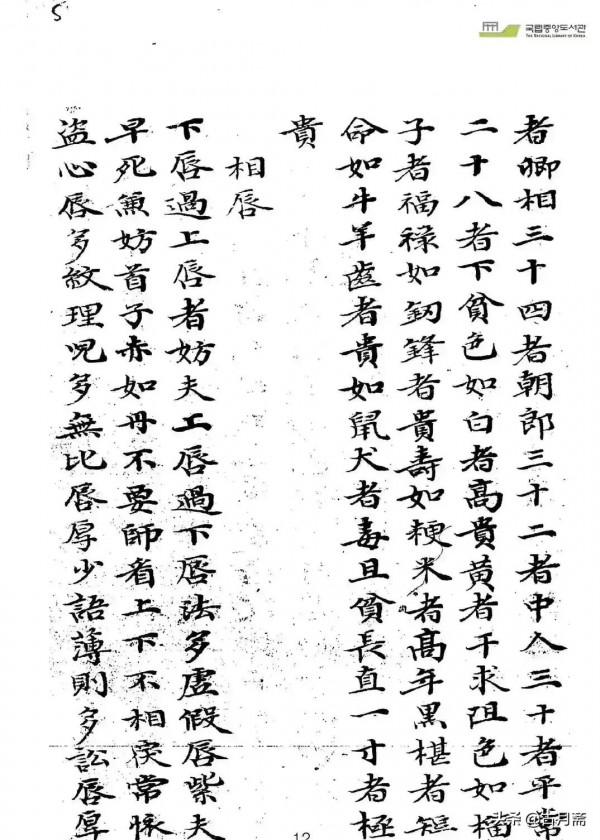 5
국립중앙도서관
THE NATIONAL LIBRARY OF KOREA
者卿相三十四者朝郎三十二者中人三十者平常
二十八者下貧色如白者高貴黃者干求阻色如榴
子者福祿如釰鋒者貴壽如粳米者髙年黑椹者短
命如牛羊齒者貴如鼠犬者毒且貧長直一寸者極
貴
相唇
下唇過上唇者妨夫工唇過下唇法多虛假唇紫夫
早死兼妨首子赤如丹不要師看上下不相常懷
盜心唇多紋理児多無比唇厚少語薄則多訟唇厚
12
头条 @皓月斋